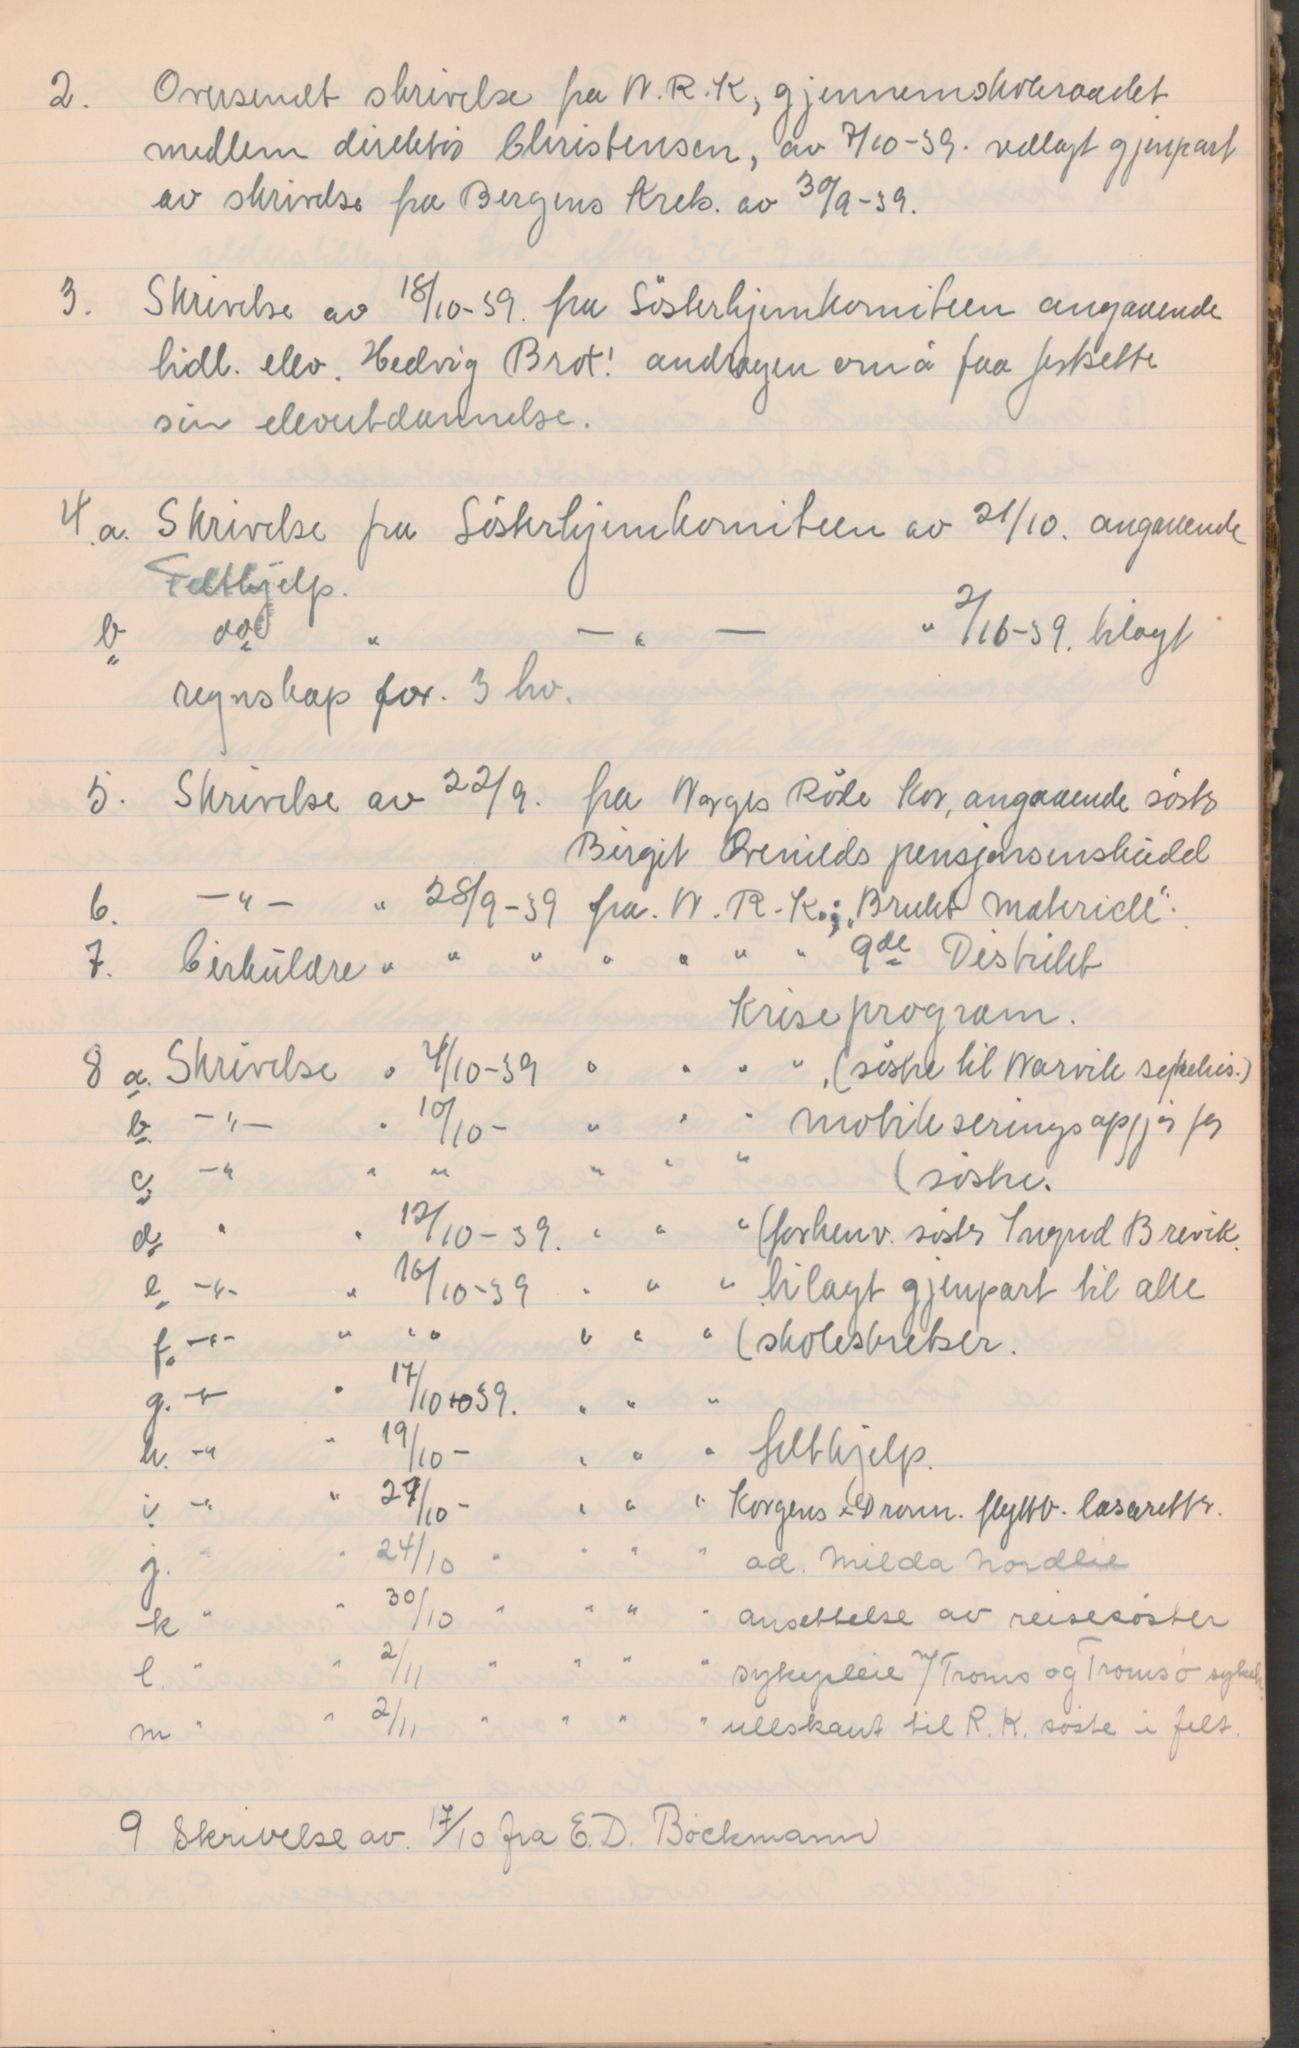 2. Oversendt skrivelse fra N.R.K, gjennem skoleraadet
medlem direktör Christensen, av 7/10-39. vedlagt gjenpart
av skrivelse fra Bergens Krets. av 30/9-39.
3. Skrivelse av 18/10-39. fra Sösterhjemkomiteen angaaende
tidl. elev. Hedvig Brox! andragen om å faa fortsette
sin elevutdannelse.
4.a. Skrivelse fra Sösterhjemkomiteen av 21/10. angaaende
Felthjelp.
b do " — " — " 2/10-39. bilagt
regnskap for. 3 kv.
5. Skrivelse av 22/9. fra Norges Röde Kor, angaaende söster
Birgit pensjonsinnskudd
6. -"- " 28/9-39 fra. N.R.K.; "Brukt Materiell".
7. Cirkulære " " " " " " " 9de Distrikt
Kriseprogram.
8 a. Skrivelse " 4/10-39 " " " ", (söstre til Narvik sykehus.)
b. -"- " 10/10- " " " Mobiliseringsoppgjör for
c. -" " " " " " (söstre.
d. " " 12/10-39. " " " (forhenv. söster Ingrid Brevik.
e. -"- " 16/10-39 " " " bilagt gjenpart til alle
f. -"- " " " " " " (skolestyrelser.
g. -" " 17/10-39. " " "
h. -" " 19/10- " " " felthjelp.
i -" " 27/10- " " " Korgens & Drom. flyttb. lasaretter.
j. " " 24/10 " " " " ad. Milda Nordlie
k " " 30/10 " " " " ansettelse av reisesöster
l. " " 2/11 " " " " sykepleie i Troms og Tromsö sykeh.
m " " 2/11 " " " " ullskaut til R.K. söstre i felt.
9 Skrivelse av. 17/10 fra E.D. Böckmann